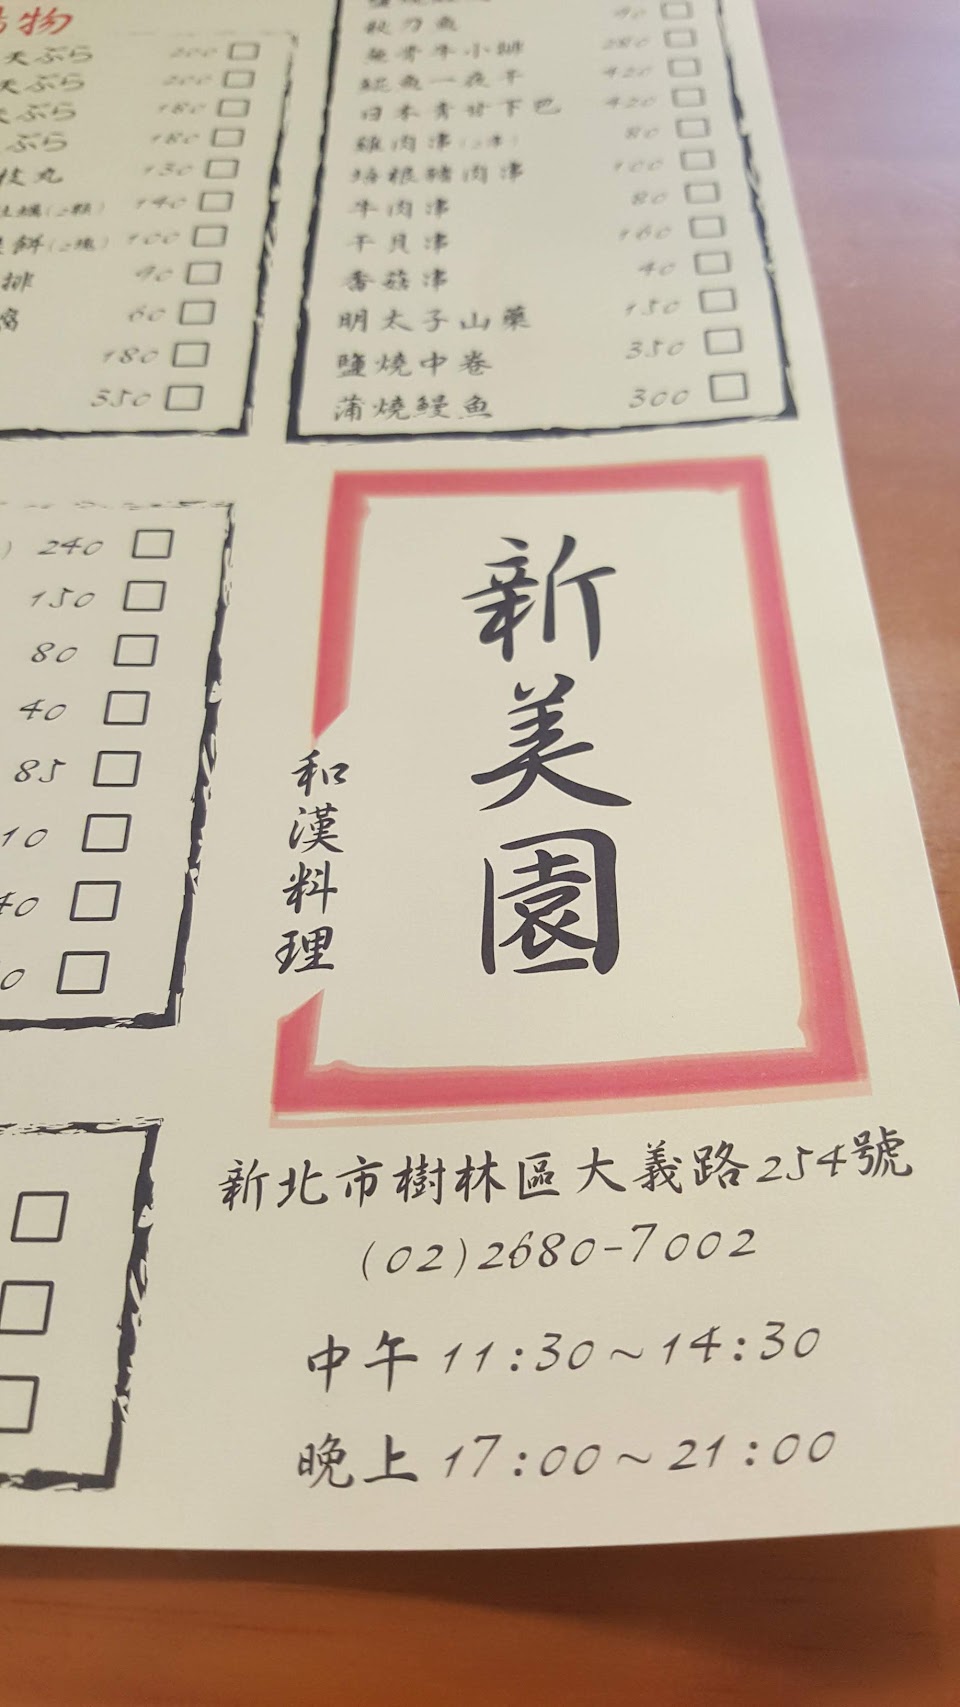 物
天ぷら 200
天ぷら 200
天ぷら 180
ぷら 180
枝丸 130
(2顆) 140
餅(2塊) 100
排 90
60
180
350
90
秋刀魚 280
無骨牛小排 420
鯤魚一夜干 420
日本青甘下巴 80
雞肉串(2串) 100
培根豬肉串 80
牛肉串 160
干貝串 40
香菇串 150
明太子山藥 350
鹽燒中卷 300
蒲燒鰻魚
) 240
150
80
40
85
10
40
0
新美園
和漢料理
新北市樹林區大義路254號
(02)2680-7002
中午 11:30~14:30
晚上 17:00~21:00